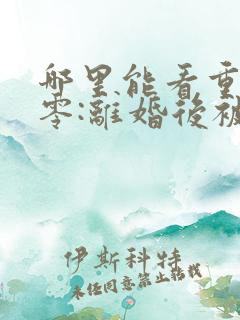 哪里能看重
零:離婚後被
伊斯科特
未经同意禁止转载